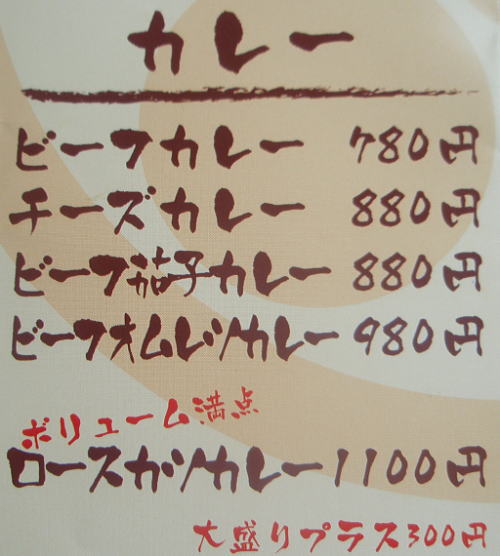 カレー
ビーフカレー 780円
チーズカレー 880円
ビーフ茄子カレー 880円
ビーフオムレツカレー 980円
ボリューム満点
ロースカツカレー 1100円
大盛りプラス300円